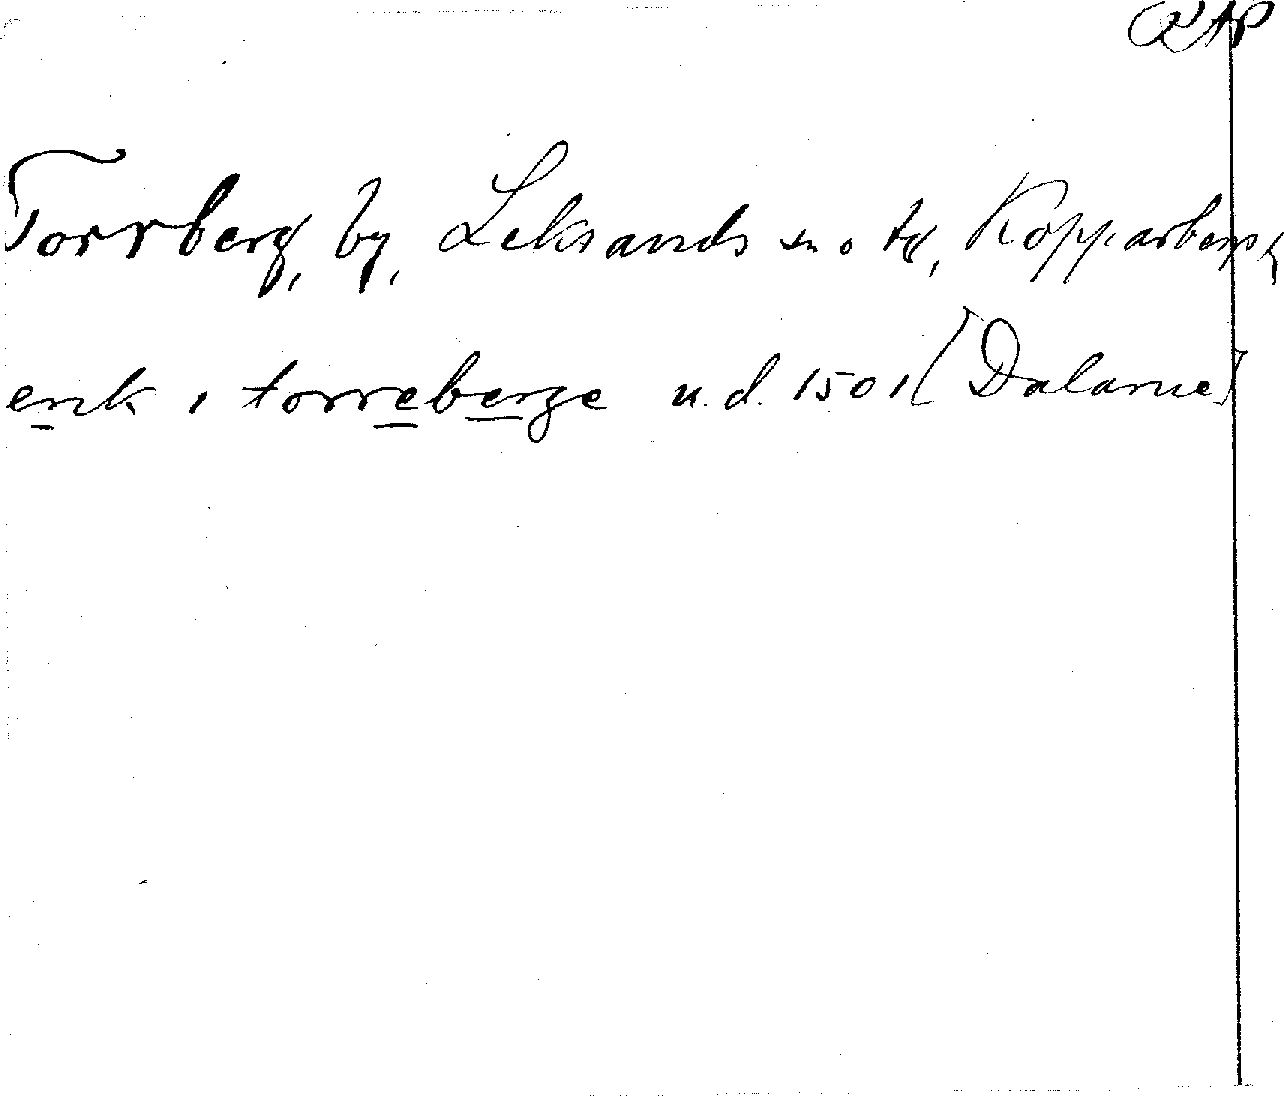 RAP
Torrberg, by, Leksands sn o tg, Kopparbergs l
erik i torreberge u.d. 1501 [Dalarne]